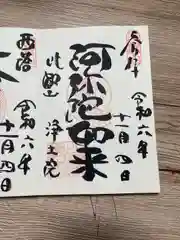 奉拝
令和六年
十一月四日
阿弥陀如来
比叡山 浄土院
西塔
令和六年
十一月四日